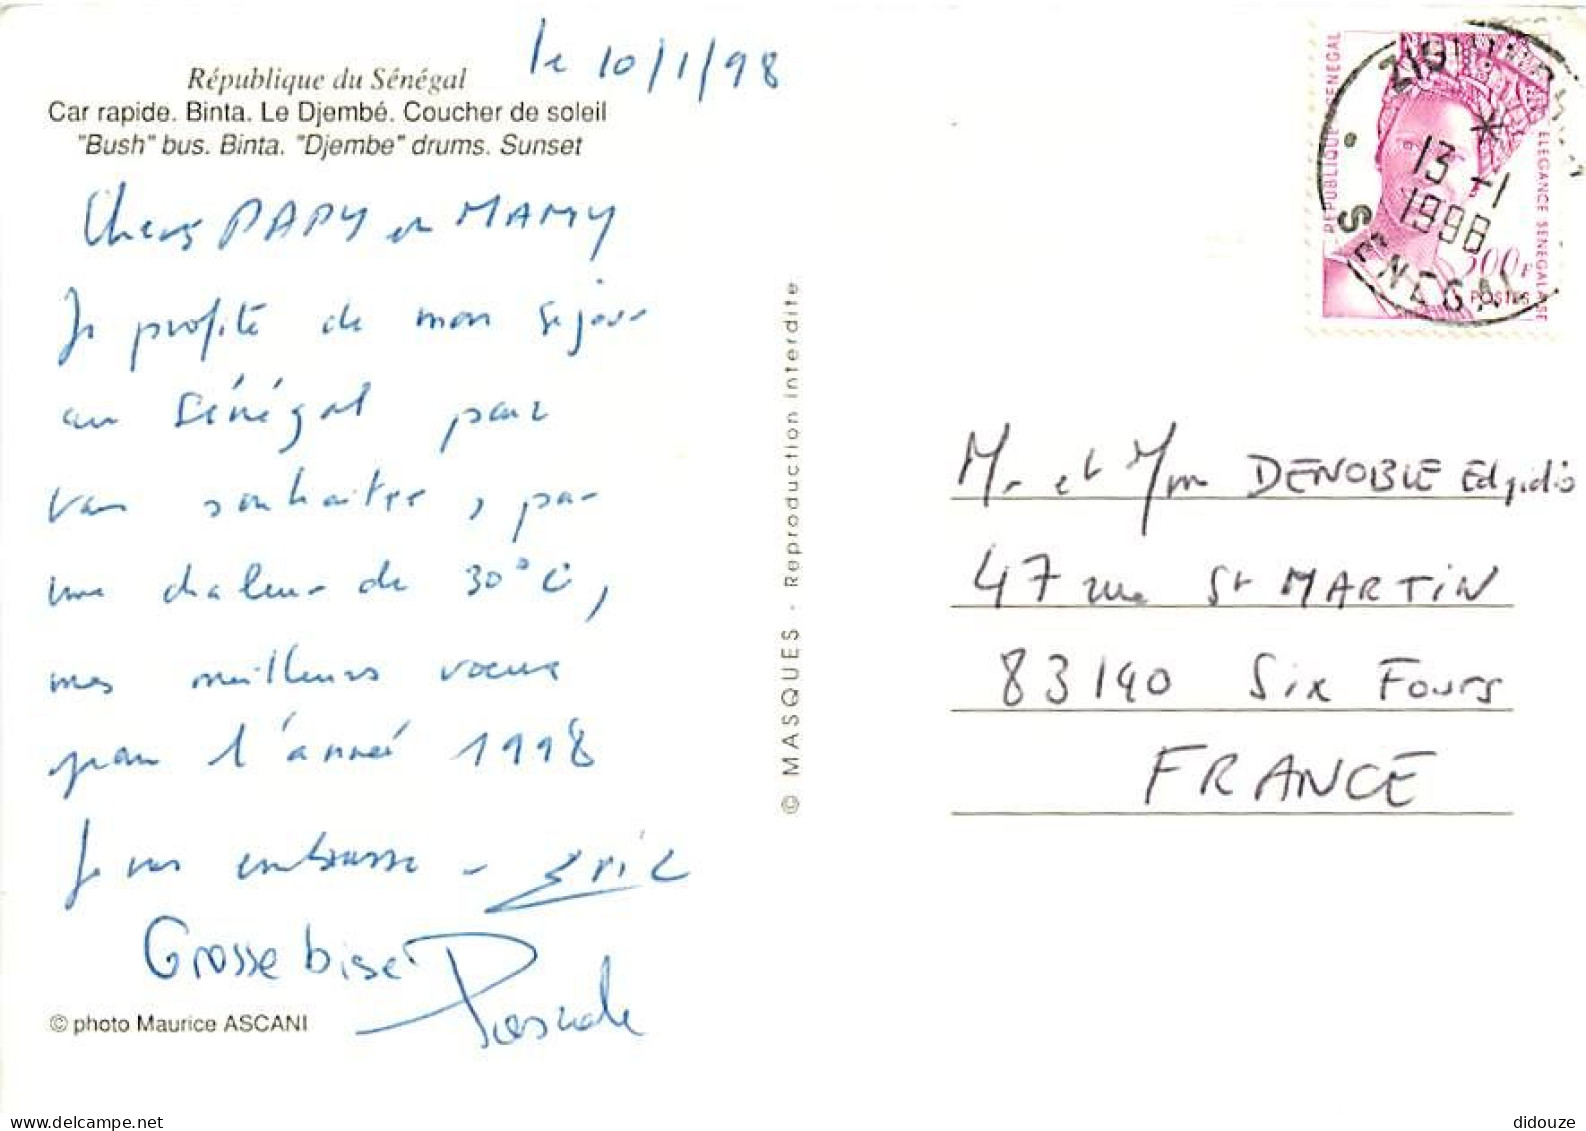 le 10/1/98
République du Sénégal
Car rapide. Binta. Le Djembé. Coucher de soleil
"Bush" bus. Binta. "Djembe" drums. Sunset
Chers PAPY et MAMY
Je profite de mon séjour
au Sénégal pour
vous souhaiter, par
une chaleur de 30°C,
mes meilleurs voeux
pour l'année 1998
Je vous embrasse - Eric
Grosse bise Pascale
© photo Maurice ASCANI
© MASQUES - Reproduction interdite
REPUBLIQUE DU SENEGAL
ELEGANCE SENEGALAISE
300F
POSTES
ZIGUINCHOR
*
13 -1
1998
SENEGAL
Mr et Mme DENOBLE Edgidio
47 rue St MARTIN
83140 Six Fours
FRANCE
didouze